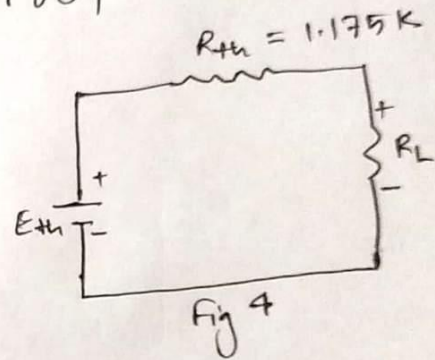 Rth = 1.175K
+
RL
-
+
Eth
-
Fig 4